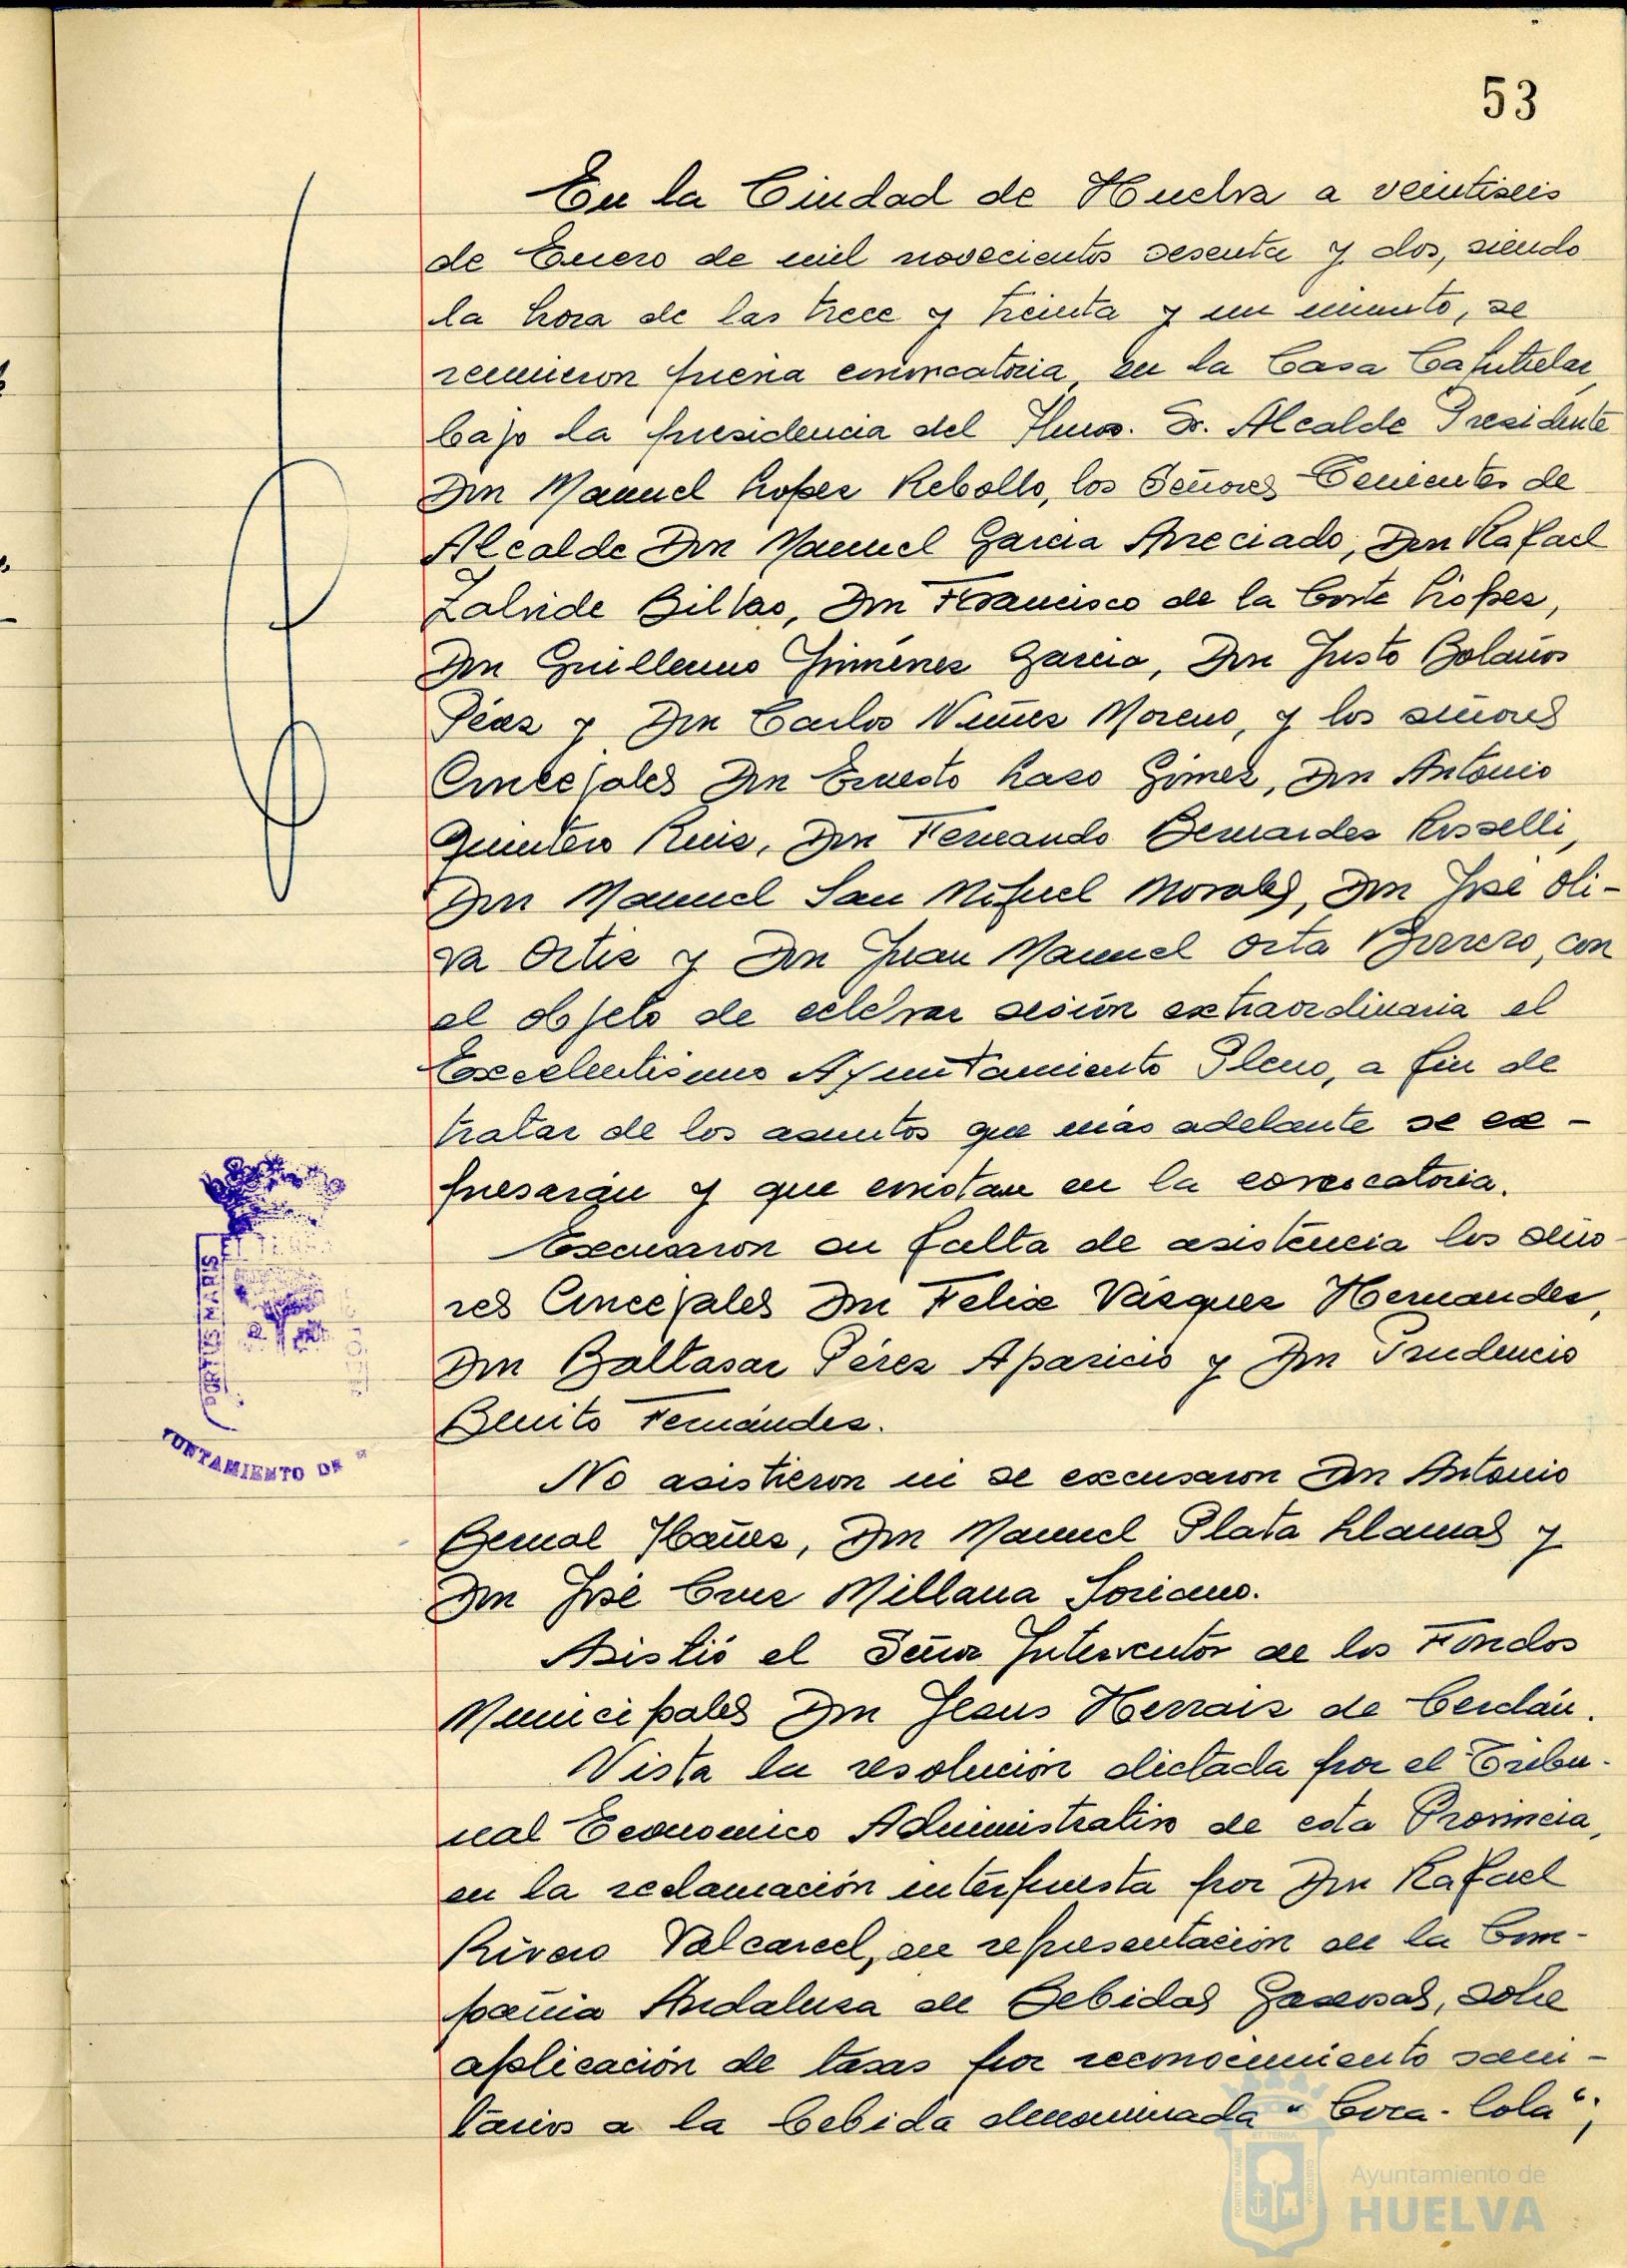 53
En la Ciudad de Huelva a veintiseis
de Enero de mil novecientos sesenta y dos, siendo
la hora de las trece y treinta y un minuto, se
reunieron previa convocatoria, en la Casa Capitular,
bajo la presidencia del Ilmo. Sr. Alcalde Presidente
Don Manuel Lopez Rebollo, los Señores Tenientes de
Alcalde Don Manuel Garcia Apreciado, Don Rafael
Zalvide Bilbao, Don Francisco de la Corte López,
Don Guillermo Jiménez Garcia, Don Justo Bolaños
Pérez y Don Carlos Nuñez Moreno, y los señores
Concejales Don Ernesto Lazo Gómez, Don Antonio
Quintero Ruiz, Don Fernando Bernardez Rosselli,
Don Manuel San Miguel Morales, Don José Oli-
va Ortiz y Don Juan Manuel Orta Borrero, con
el objeto de celebrar sesión extraordinaria el
Excelentisimo Ayuntamiento Pleno, a fin de
tratar de los asuntos que más adelante se ex-
presarán y que constan en la convocatoria.
Excusaron su falta de asistencia los seño-
res Concejales Don Felix Vázquez Hernandez,
Don Baltasar Pérez Aparicio y Don Prudencio
Benito Fernández.
No asistieron ni se excusaron Don Antonio
Bernal Ibañez, Don Manuel Plata Llamas y
Don José Cruz Millana Soriano.
Asistió el Señor Interventor de los Fondos
Municipales Don Jesus Herraiz de Cerdán.
Vista la resolución dictada por el Tribu-
nal Economico Administrativo de esta Provincia,
en la reclamación interpuesta por Don Rafael
Rivero Valcarcel, en representación de la Com-
pañia Andaluza de Bebidas Gaseosas, sobre
aplicación de tasas por reconocimiento sani-
tarios a la bebida denominada "Coca-Cola";
ET TERRA
PORTUS MARIS
YUNTAMIENTO DE
Ayuntamiento de
HUELVA